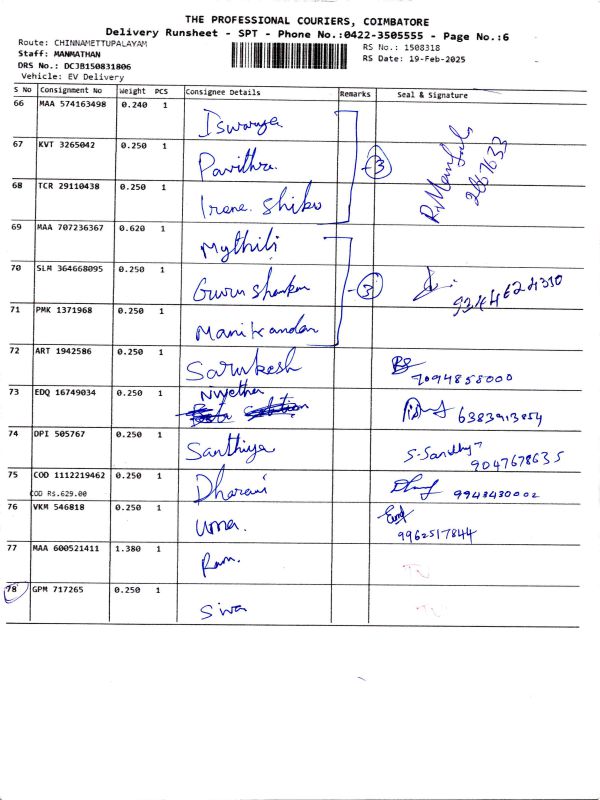 THE PROFESSIONAL COURIERS, COIMBATORE
Delivery Runsheet - SPT - Phone No.:0422-3505555 - Page No.:6
Route: CHINNAMETTUPALAYAM
Staff: MANMATHAN
DRS No.: DCJB150831806
Vehicle: EV Delivery
RS No.: 1508318
RS Date: 19-Feb-2025
S No Consignment No Weight PCS Consignee Details Remarks Seal & Signature
66 MAA 574163498 0.240 1 Iswarya
67 KVT 3265042 0.250 1 Pavithra.
68 TCR 29110438 0.250 1 Irene. Shibu
3
69 MAA 707236367 0.620 1 Mythili
70 SLM 364668095 0.250 1 Gurushankar
3
71 PMK 1371968 0.250 1 Manikandan
72 ART 1942586 0.250 1 Sarukesh
73 EDQ 16749034 0.250 1 Nivetha 6383913854
74 DPI 505767 0.250 1 Santhiya 9047678635
75 COD 1112219462 0.250 1 Dharani 9943430002
COD Rs.629.00
76 VKM 546818 0.250 1 Uma. 9962517844
77 MAA 600521411 1.380 1 Ram.
78 GPM 717265 0.250 1 Siva